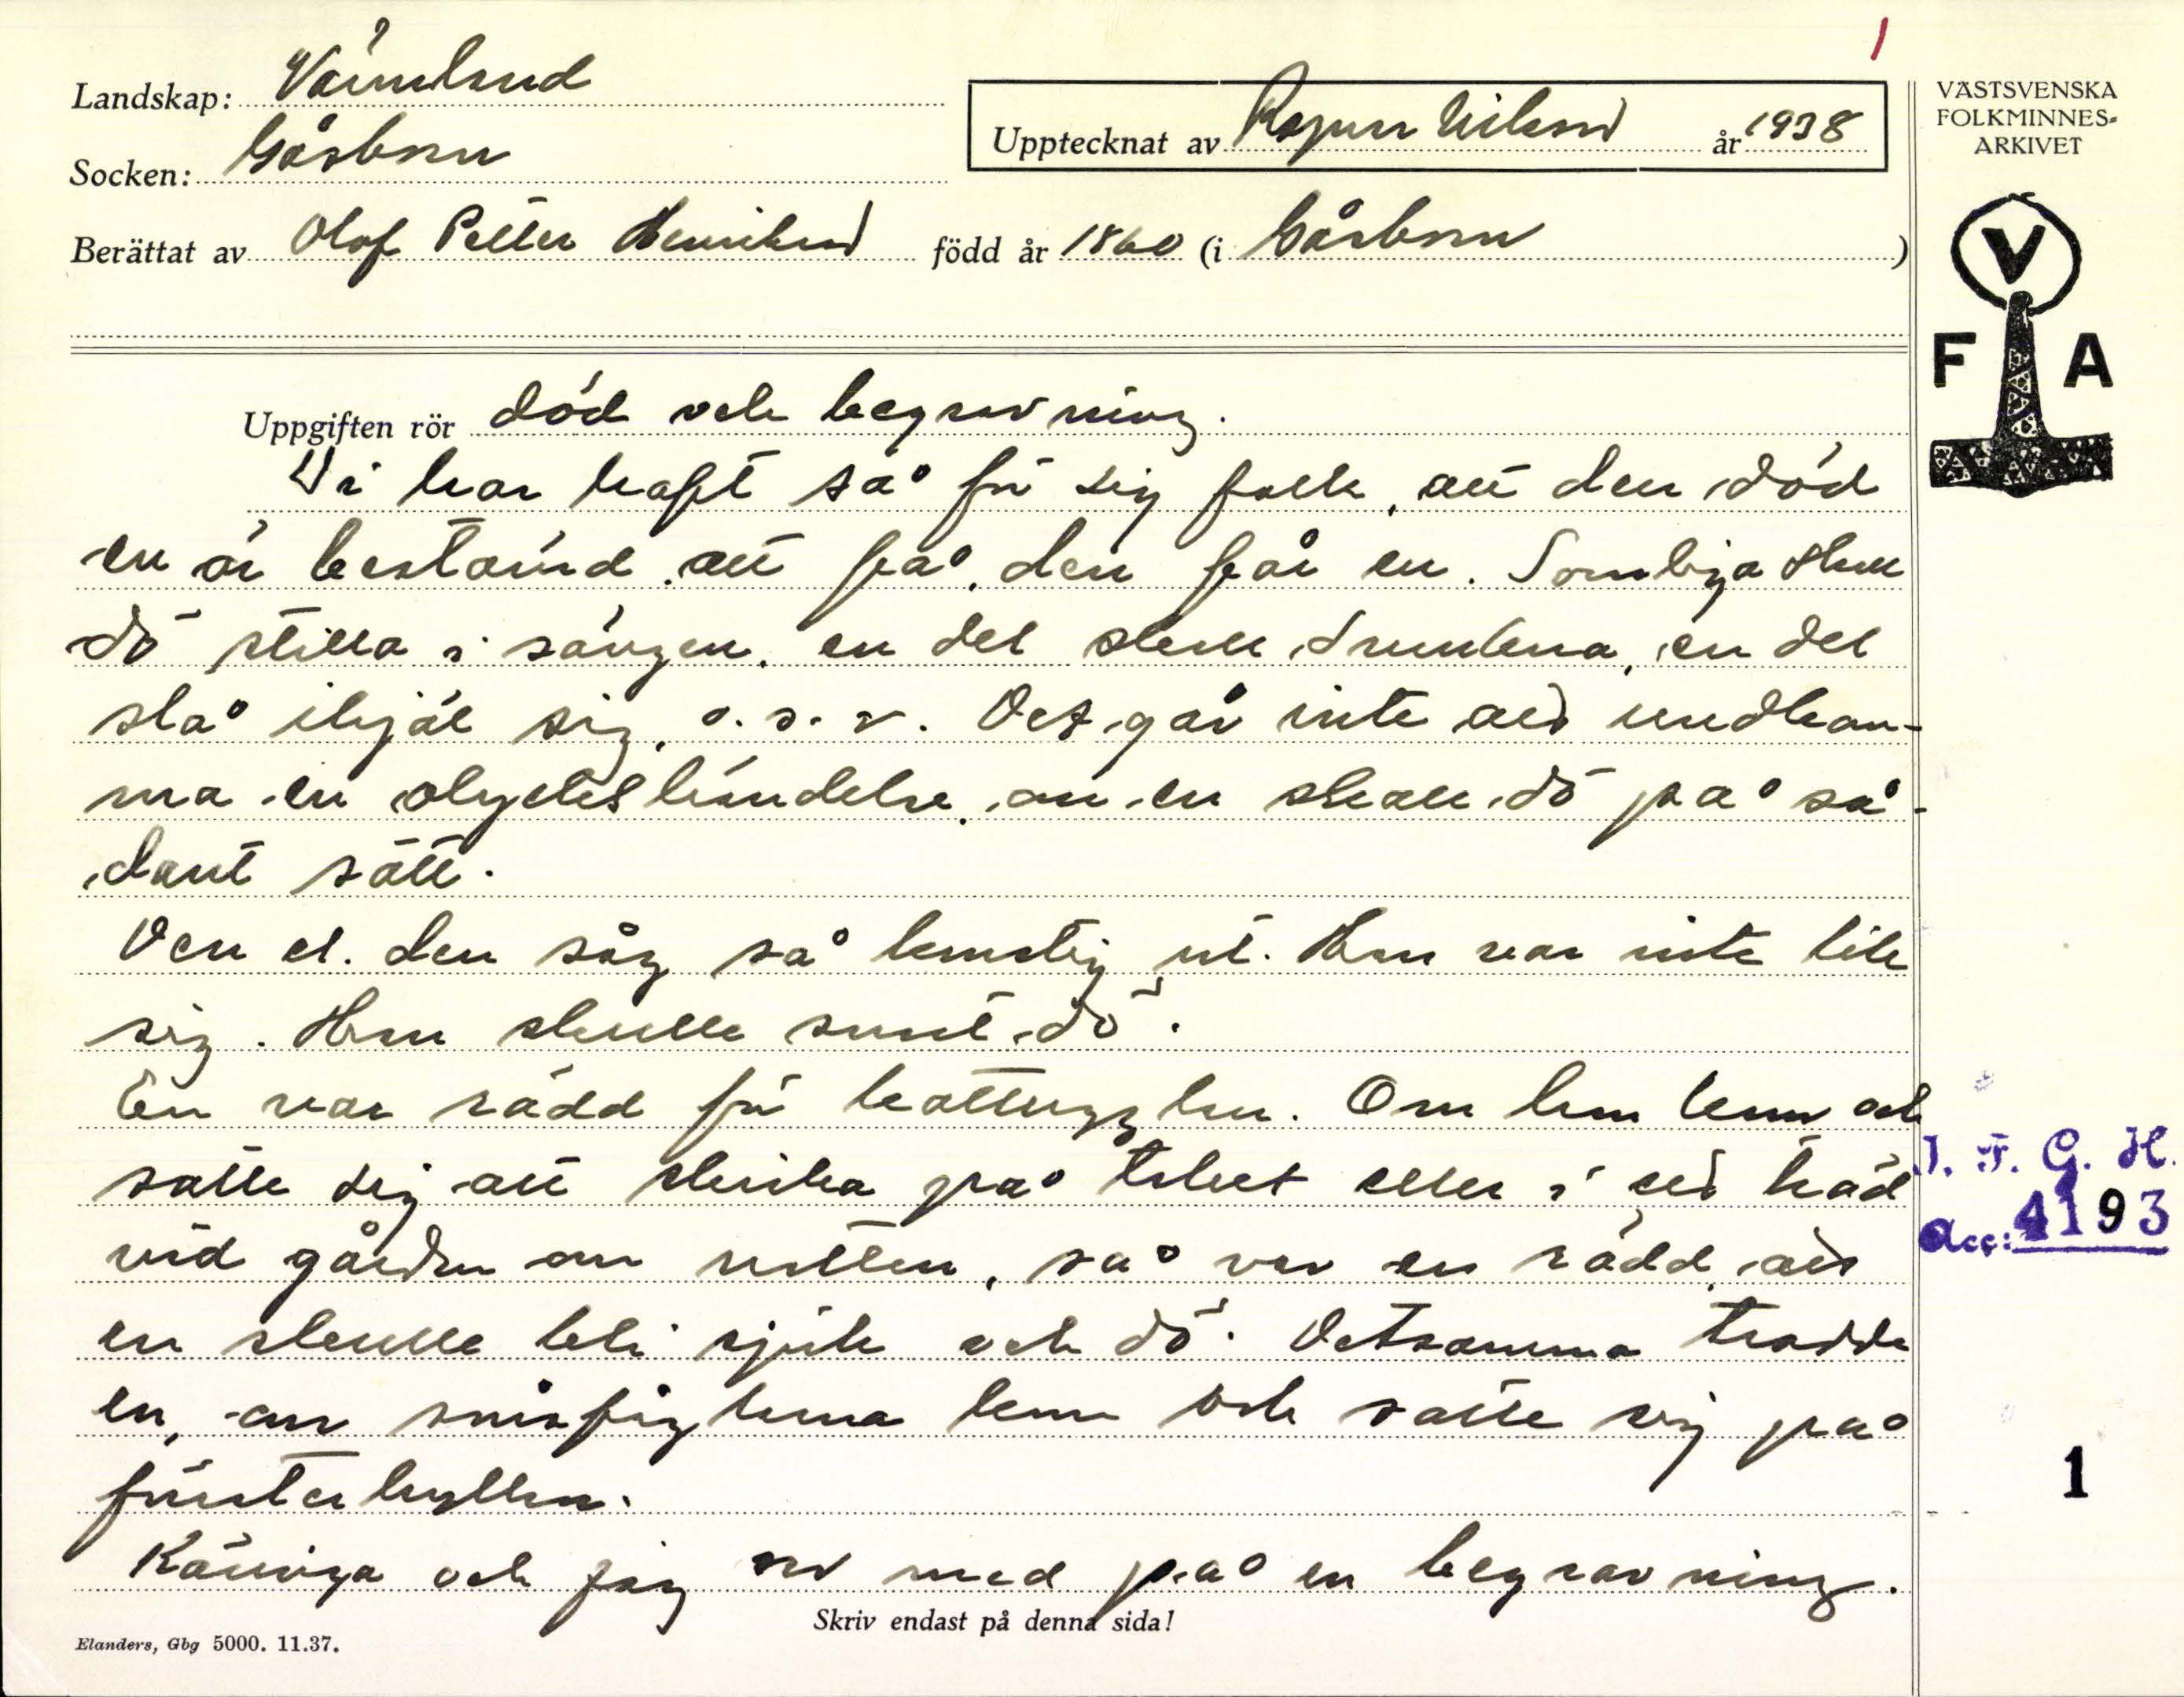 1
Landskap: Värmland
VÄSTSVENSKA
FOLKMINNES-
ARKIVET
Upptecknat av Ragnar Nilsson år 1938
Socken: Gåsborn
Berättat av Olof Petter Henriksson född år 1860 (i Gåsborn)
V
F A
Uppgiften rör död och begravning.
Vi har haft så för sig folk, att den död
en är bestämd att få, den får en. Somliga skall
dö stilla i sängen, en del skall drunkna, en del
slå ihjäl sig, o.s.v. Det går inte att undkom-
ma en olyckshändelse, om en skall dö på så-
dant sätt.
Den el. den såg så konstig ut. Han var inte lik
sig. Han skulle snart dö.
En var rädd för kattugglan. Om han kom och
satte sig att skrika på taket eller i ett träd
vid gården om natten, så var en rädd, att
en skulle bli sjuk och dö. Detsamma trodde
en, om småfåglarna kom och satte sig på
fönsterhyllan.
och jag var med på en begravning.
I. F. G. H.
Acc: 4193
1
Skriv endast på denna sida!
Elanders, Gbg 5000. 11.37.